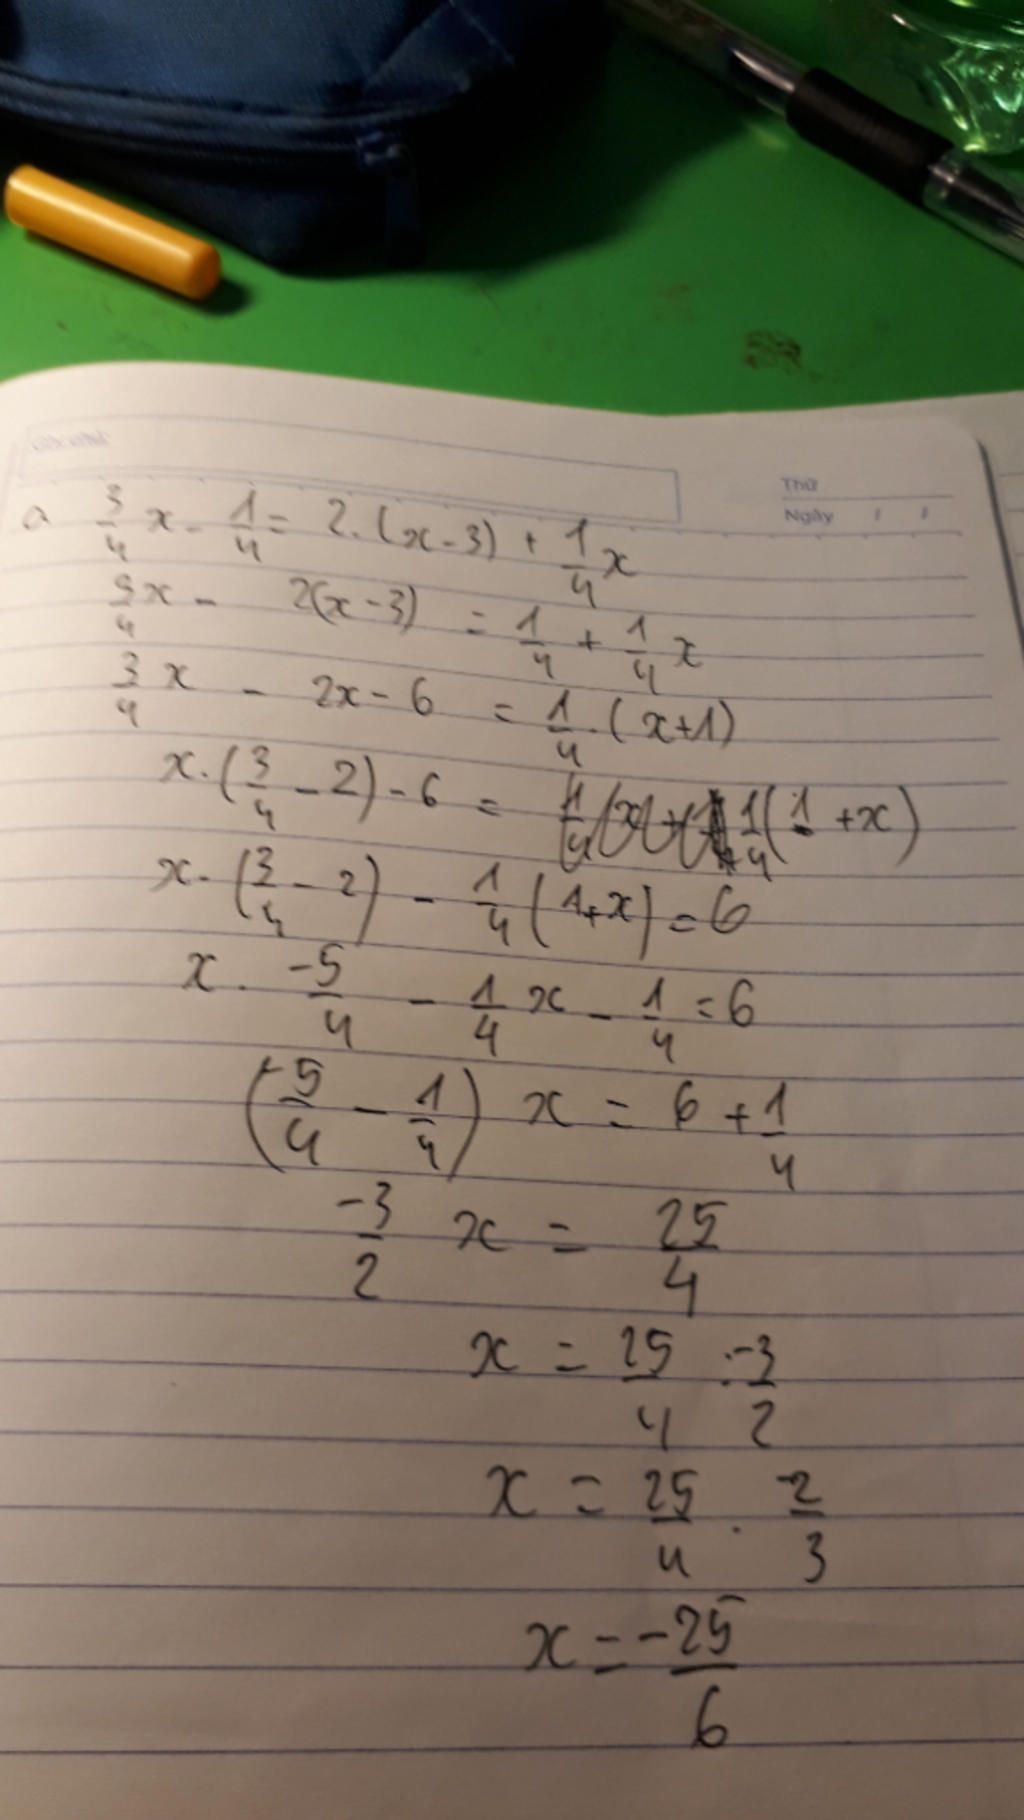 Thứ
Ngày / /
a 3/4 x - 1/4 = 2.(x-3) + 1/4 x
3/4 x - 2(x-3) = 1/4 + 1/4 x
3/4 x - 2x - 6 = 1/4.(x+1)
x.(3/4 - 2) - 6 = 1/4(1+x)
x.(3/4 - 2) - 1/4(1+x) = 6
x. -5/4 - 1/4 x - 1/4 = 6
(-5/4 - 1/4) x = 6 + 1/4
-3/2 x = 25/4
x = 25/4 : -3/2
x = 25/4 . -2/3
x = -25/6